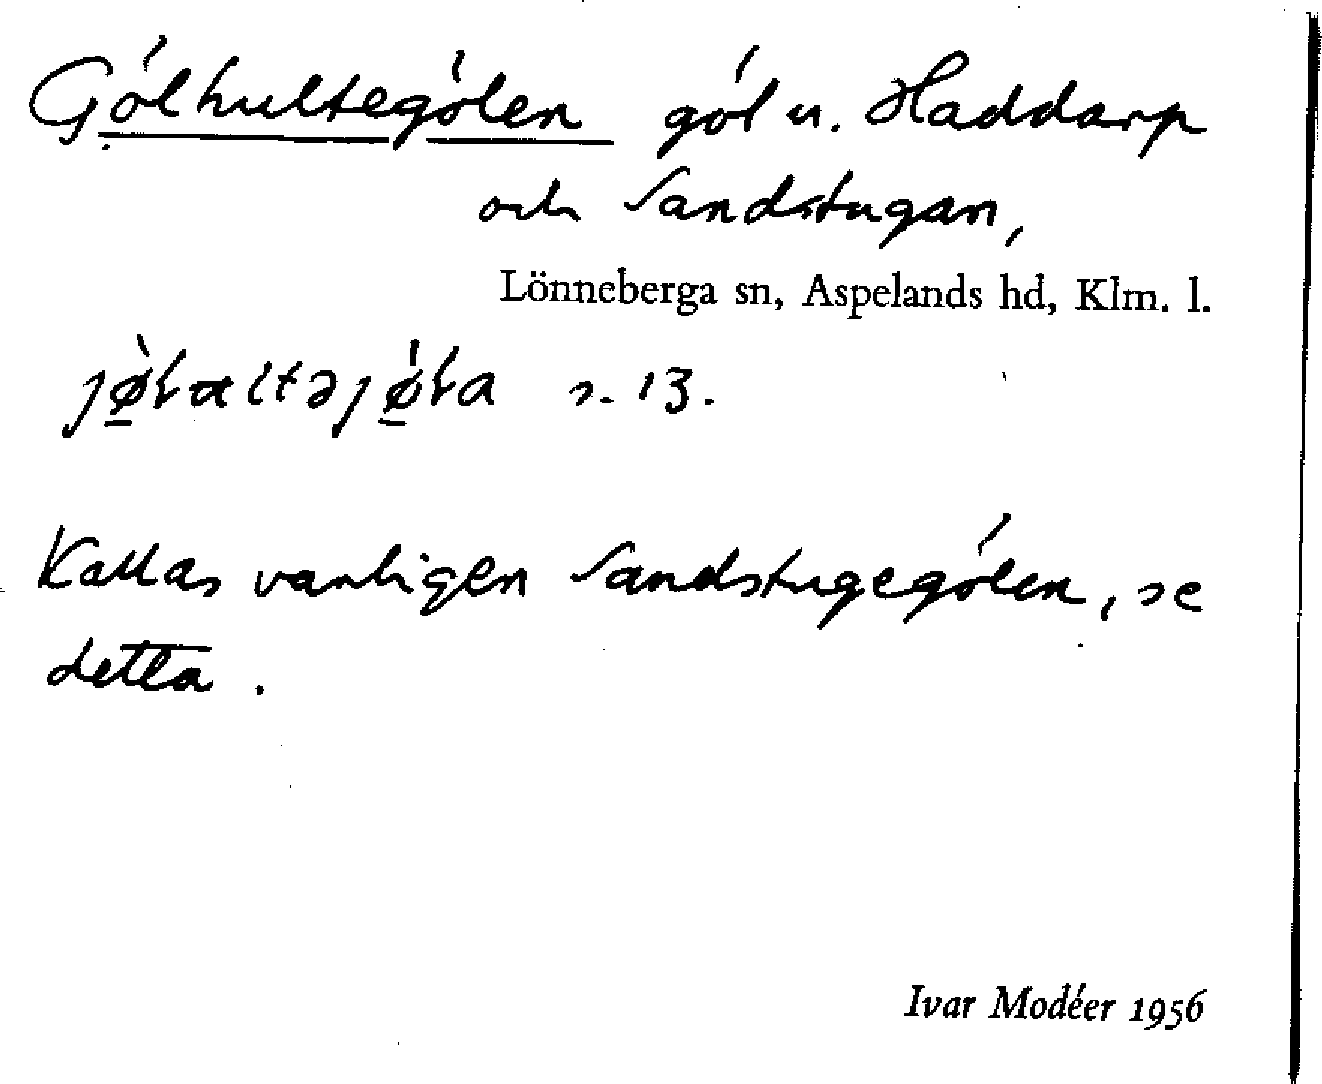 Gólhultególen gól u. Haddarp
och Sandstugan,
Lönneberga sn, Aspelands hd, Klm. l.
s. 13.
Kallas vanligen Sandstugególen, se
detta.
Ivar Modéer 1956